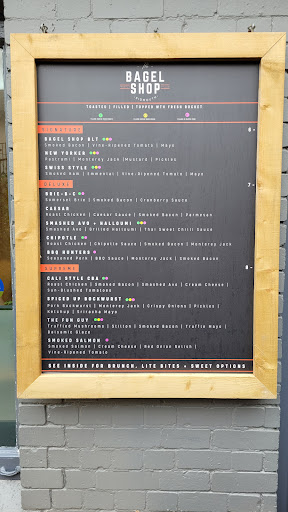 The
BAGEL
SHOP
TOASTED | FILLED | TOPPED WITH FRESH ROCKET
SIGNATURE 6 -
BAGEL SHOP BLT
Smoked Bacon | Vine-Ripened Tomato | Mayo
NEW YORKER
Pastrami | Monterey Jack | Mustard | Pickles
SWISS STYLE
Smoked Ham | Emmental | Vine-Ripened Tomato | Mayo
DELUXE 7 -
BRIE-B-C
Somerset Brie | Smoked Bacon | Cranberry Sauce
CAESAR
Roast Chicken | Caesar Sauce | Smoked Bacon | Parmesan
SMASHED AVO + HALLOUMI
Smashed Avo | Grilled Halloumi | Thai Sweet Chilli Sauce
CHIPOTLE
Roast Chicken | Chipotle Sauce | Smoked Bacon | Monterey Jack
BBQ HUNTERS
Seasoned Pork | BBQ Sauce | Smoked Bacon | Monterey Jack
SUPREME 8 -
CALI STYLE CBA
Roast Chicken | Smoked Bacon | Smashed Avo | Cream Cheese |
Sun-Blushed Tomatoes
SPICED UP BOCKWURST
Pork Bockwurst | Monterey Jack | Crispy Onions | Pickles |
Ketchup | Sriracha Mayo
THE FUN GUY
Truffled Mushrooms | Stilton | Smoked Bacon | Truffle Mayo |
Balsamic Glaze
SMOKED SALMON
Smoked Salmon | Cream Cheese | Red Onion Relish |
Vine-Ripened Tomato
SEE INSIDE FOR BRUNCH, LITE BITES + SWEET OPTIONS